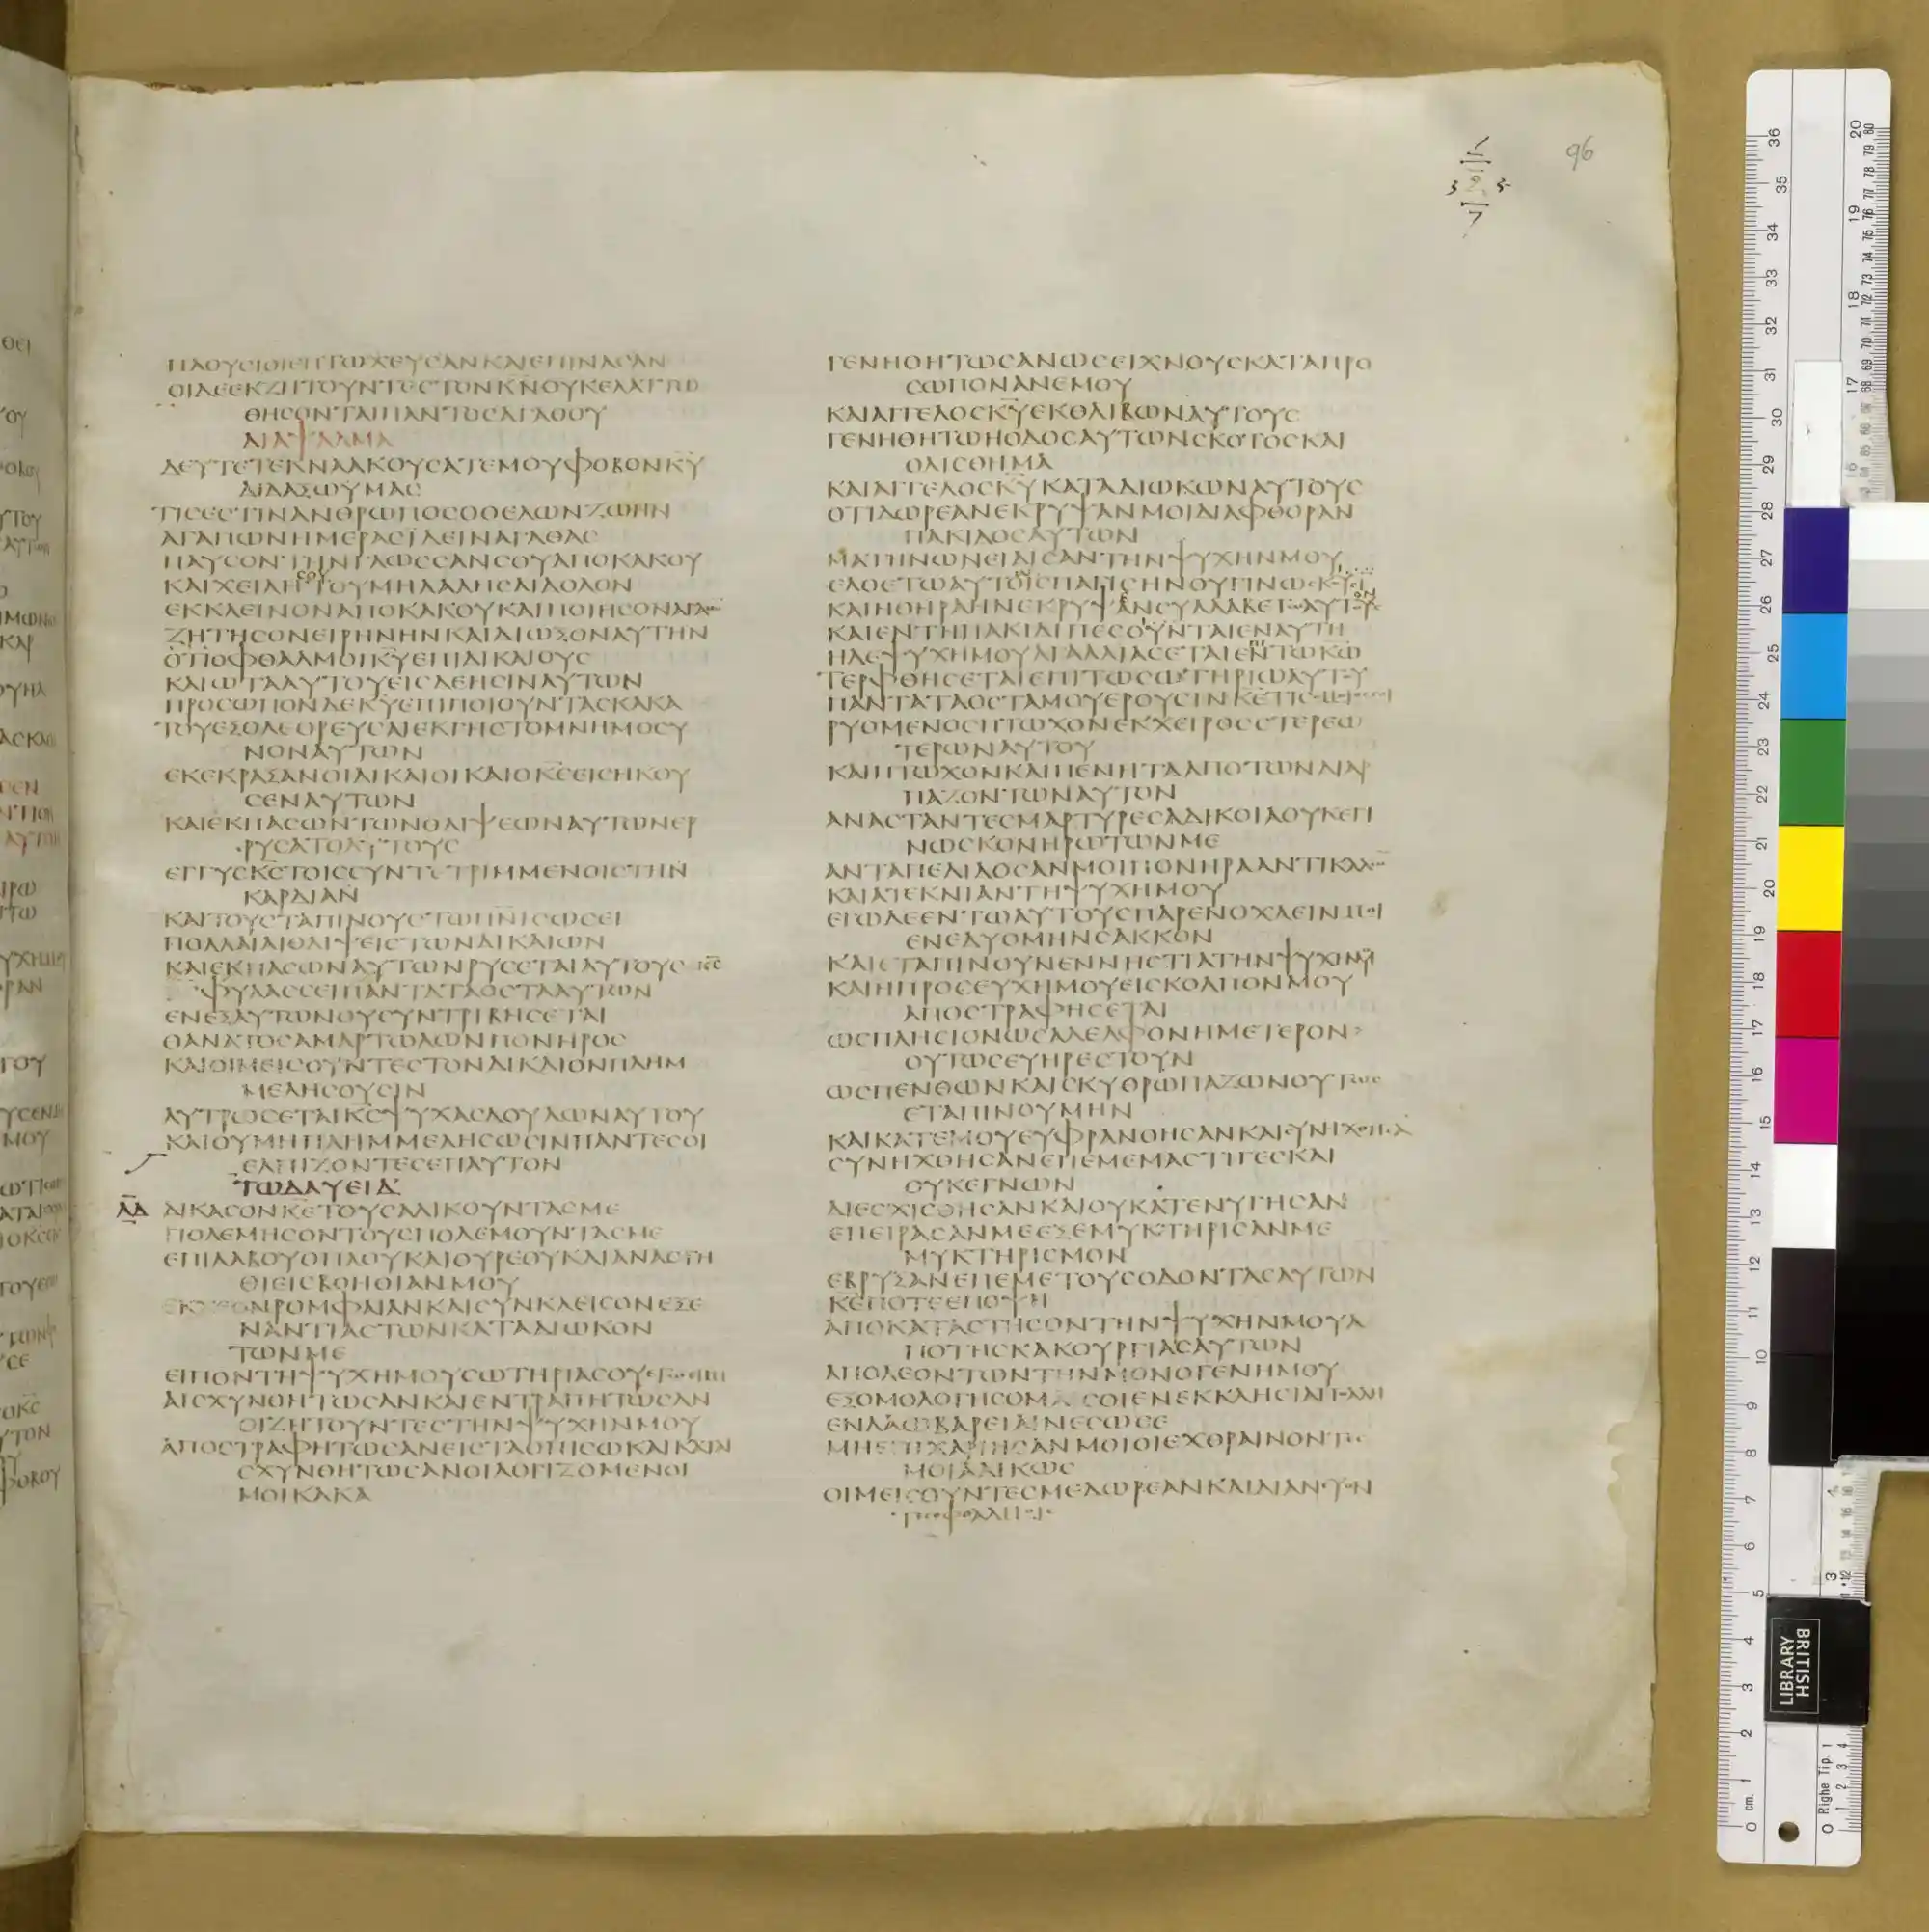 ΠΛΟΥCΙΟΙΕΠΤΩΧΕΥCΑΝΚΑΙΕΠΙΝΑCΑΝ
ΟΙΔΕΕΚΖΗΤΟΥΝΤΕCΤΟΝΚΝΟΥΚΕΛΑΤΤΩ
ΘΗCΟΝΤΑΙΠΑΝΤΟCΑΓΑΘΟΥ
ΔΙΑΨΑΛΜΑ
ΔΕΥΤΕΤΕΚΝΑΑΚΟΥCΑΤΕΜΟΥΦΟΒΟΝΚΥ
ΔΙΔΑΞΩΥΜΑC
ΤΙCΕCΤΙΝΑΝΘΡΩΠΟCΟΘΕΛΩΝΖΩΗΝ
ΑΓΑΠΩΝΗΜΕΡΑCΪΔΕΙΝΑΓΑΘΑC
ΠΑΥCΟΝΤΗΝΓΛΩCCΑΝCΟΥΑΠΟΚΑΚΟΥ
ΚΑΙΧΕΙΛΗCΟΥΤΟΥΜΗΛΑΛΗCΑΙΔΟΛΟΝ
ΕΚΚΛΕΙΝΟΝΑΠΟΚΑΚΟΥΚΑΙΠΟΙΗCΟΝΑΓΑΘΟ
ΖΗΤΗCΟΝΕΙΡΗΝΗΝΚΑΙΔΙΩΞΟΝΑΥΤΗΝ
ΟΤΙΟΦΘΑΛΜΟΙΚΥΕΠΙΔΙΚΑΙΟΥC
ΚΑΙΩΤΑΑΥΤΟΥΕΙCΔΕΗCΙΝΑΥΤΩΝ
ΠΡΟCΩΠΟΝΔΕΚΥΕΠΙΠΟΙΟΥΝΤΑCΚΑΚΑ
ΤΟΥΕΞΟΛΕΘΡΕΥCΑΙΕΚΓΗCΤΟΜΝΗΜΟCΥ
ΝΟΝΑΥΤΩΝ
ΕΚΕΚΡΑΞΑΝΟΙΔΙΚΑΙΟΙΚΑΙΟΚCΕΙCΗΚΟΥ
CΕΝΑΥΤΩΝ
ΚΑΙΕΚΠΑCΩΝΤΩΝΘΛΙΨΕΩΝΑΥΤΩΝΕΡ
ΡΥCΑΤΟΑΥΤΟΥC
ΕΓΓΥCΚCΤΟΙCCΥΝΤΕΤΡΙΜΜΕΝΟΙCΤΗΝ
ΚΑΡΔΙΑΝ
ΚΑΙΤΟΥCΤΑΠΙΝΟΥCΤΩΠΝΙCΩCΕΙ
ΠΟΛΛΑΙΑΙΘΛΙΨΕΙCΤΩΝΔΙΚΑΙΩΝ
ΚΑΙΕΚΠΑCΩΝΑΥΤΩΝΡΥCΕΤΑΙΑΥΤΟΥC ΚC
ΦΥΛΑCCΕΙΠΑΝΤΑΤΑΟCΤΑΑΥΤΩΝ
ΕΝΕΞΑΥΤΩΝΟΥCΥΝΤΡΙΒΗCΕΤΑΙ
ΘΑΝΑΤΟCΑΜΑΡΤΩΛΩΝΠΟΝΗΡΟC
ΚΑΙΟΙΜΕΙCΟΥΝΤΕCΤΟΝΔΙΚΑΙΟΝΠΛΗΜ
ΜΕΛΗCΟΥCΙΝ
ΛΥΤΡΩCΕΤΑΙΚCΨΥΧΑCΔΟΥΛΩΝΑΥΤΟΥ
ΚΑΙΟΥΜΗΠΛΗΜΜΕΛΗCΩCΙΝΠΑΝΤΕCΟΙ
ΕΛΠΙΖΟΝΤΕCΕΠΑΥΤΟΝ
ΤΩΔΑΥΕΙΔ
ΛΔ ΔΙΚΑCΟΝΚΕΤΟΥCΑΔΙΚΟΥΝΤΑCΜΕ
ΠΟΛΕΜΗCΟΝΤΟΥCΠΟΛΕΜΟΥΝΤΑCΜΕ
ΕΠΙΛΑΒΟΥΟΠΛΟΥΚΑΙΘΥΡΕΟΥΚΑΙΑΝΑCΤΗ
ΘΙΕΙCΒΟΗΘΙΑΝΜΟΥ
ΕΚΧΕΟΝΡΟΜΦΑΙΑΝΚΑΙCΥΝΚΛΕΙCΟΝΕΞΕ
ΝΑΝΤΙΑCΤΩΝΚΑΤΑΔΙΩΚΟΝ
ΤΩΝΜΕ
ΕΙΠΟΝΤΗΨΥΧΗΜΟΥCΩΤΗΡΙΑCΟΥΕΓΩΕΙΜΙ
ΑΙCΧΥΝΘΗΤΩCΑΝΚΑΙΕΝΤΡΑΠΗΤΩCΑΝ
ΟΙΖΗΤΟΥΝΤΕCΤΗΝΨΥΧΗΝΜΟΥ
ΑΠΟCΤΡΑΦΗΤΩCΑΝΕΙCΤΑΟΠΙCΩΚΑΙΚΑΤΑΙ
CΧΥΝΘΗΤΩCΑΝΟΙΛΟΓΙΖΟΜΕΝΟΙ
ΜΟΙΚΑΚΑ
96
ΓΕΝΗΘΗΤΩCΑΝΩCΕΙΧΝΟΥCΚΑΤΑΠΡΟ
CΩΠΟΝΑΝΕΜΟΥ
ΚΑΙΑΓΓΕΛΟCΚΥΕΚΘΛΙΒΩΝΑΥΤΟΥC
ΓΕΝΗΘΗΤΩΗΟΔΟCΑΥΤΩΝCΚΟΤΟCΚΑΙ
ΟΛΙCΘΗΜΑ
ΚΑΙΑΓΓΕΛΟCΚΥΚΑΤΑΔΙΩΚΩΝΑΥΤΟΥC
ΟΤΙΔΩΡΕΑΝΕΚΡΥΨΑΝΜΟΙΔΙΑΦΘΟΡΑΝ
ΠΑΚΙΔΟCΑΥΤΩΝ
ΜΑΤΗΝΩΝΕΙΔΙCΑΝΤΗΝΨΥΧΗΝΜΟΥ
ΕΛΘΕΤΩΑΥΤΟΙCΠΑΓΙCΗΝΟΥΓΙΝΩCΚΟΥCΙ
ΚΑΙΗΘΗΡΑΗΝΕΚΡΥΨΑΝCΥΛΛΑΒΕΤΩΑΥΤΟΥC
ΚΑΙΕΝΤΗΠΑΚΙΔΙΠΕCΟΥΝΤΑΙΕΝΑΥΤΗ
ΗΔΕΨΥΧΗΜΟΥΑΓΑΛΛΙΑCΕΤΑΙΕΝΤΩΚΩ
ΤΕΡΦΘΗCΕΤΑΙΕΠΙΤΩCΩΤΗΡΙΩΑΥΤΟΥ
ΠΑΝΤΑΤΑΟCΤΑΜΟΥΕΡΟΥCΙΝΚΕΤΙCΟΜΟΙΟCCΟΙ
ΡΥΟΜΕΝΟCΠΤΩΧΟΝΕΚΧΕΙΡΟCCΤΕΡΕΩ
ΤΕΡΩΝΑΥΤΟΥ
ΚΑΙΠΤΩΧΟΝΚΑΙΠΕΝΗΤΑΑΠΟΤΩΝΔΙΑΡ
ΠΑΖΟΝΤΩΝΑΥΤΟΝ
ΑΝΑCΤΑΝΤΕCΜΑΡΤΥΡΕCΑΔΙΚΟΙΑΟΥΚΕΓΙ
ΝΩCΚΟΝΗΡΩΤΩΝΜΕ
ΑΝΤΑΠΕΔΙΔΟCΑΝΜΟΙΠΟΝΗΡΑΑΝΤΙΚΑΛΩΝ
ΚΑΙΑΤΕΚΝΙΑΝΤΗΨΥΧΗΜΟΥ
ΕΓΩΔΕΕΝΤΩΑΥΤΟΥCΠΑΡΕΝΟΧΛΕΙΝΜΟΙ
ΕΝΕΔΥΟΜΗΝCΑΚΚΟΝ
ΚΑΙΕΤΑΠΙΝΟΥΝΕΝΝΗCΤΙΑΤΗΝΨΥΧΗΝΜΟΥ
ΚΑΙΗΠΡΟCΕΥΧΗΜΟΥΕΙCΚΟΛΠΟΝΜΟΥ
ΑΠΟCΤΡΑΦΗCΕΤΑΙ
ΩCΠΛΗCΙΟΝΩCΑΔΕΛΦΟΝΗΜΕΤΕΡΟΝ
ΟΥΤΩCΕΥΗΡΕCΤΟΥΝ
ΩCΠΕΝΘΩΝΚΑΙCΚΥΘΡΩΠΑΖΩΝΟΥΤΩC
ΕΤΑΠΙΝΟΥΜΗΝ
ΚΑΙΚΑΤΕΜΟΥΕΥΦΡΑΝΘΗCΑΝΚΑΙCΥΝΗΧΘΗCΑ
CΥΝΗΧΘΗCΑΝΕΠΕΜΕΜΑCΤΙΓΕCΚΑΙ
ΟΥΚΕΓΝΩΝ
ΔΙΕCΧΙCΘΗCΑΝΚΑΙΟΥΚΑΤΕΝΥΓΗCΑΝ
ΕΠΕΙΡΑCΑΝΜΕΕΞΕΜΥΚΤΗΡΙCΑΝΜΕ
ΜΥΚΤΗΡΙCΜΟΝ
ΕΒΡΥΞΑΝΕΠΕΜΕΤΟΥCΟΔΟΝΤΑCΑΥΤΩΝ
ΚΕΠΟΤΕΕΠΟΨΗ
ΑΠΟΚΑΤΑCΤΗCΟΝΤΗΝΨΥΧΗΝΜΟΥΑ
ΠΟΤΗCΚΑΚΟΥΡΓΙΑCΑΥΤΩΝ
ΑΠΟΛΕΟΝΤΩΝΤΗΝΜΟΝΟΓΕΝΗΜΟΥ
ΕΞΟΜΟΛΟΓΗCΟΜΑΙCΟΙΕΝΕΚΚΛΗCΙΑΠΟΛΛΗ
ΕΝΛΑΩΒΑΡΕΙΑΙΝΕCΩCΕ
ΜΗΕΠΙΧΑΡΙΗCΑΝΜΟΙΟΙΕΧΘΡΑΙΝΟΝΤΕC
ΜΟΙΑΔΙΚΩC
ΟΙΜΕΙCΟΥΝΤΕCΜΕΔΩΡΕΑΝΚΑΙΔΙΑΝΕΥΟΝ
ΤΕCΟΦΘΑΛΜΟΙC